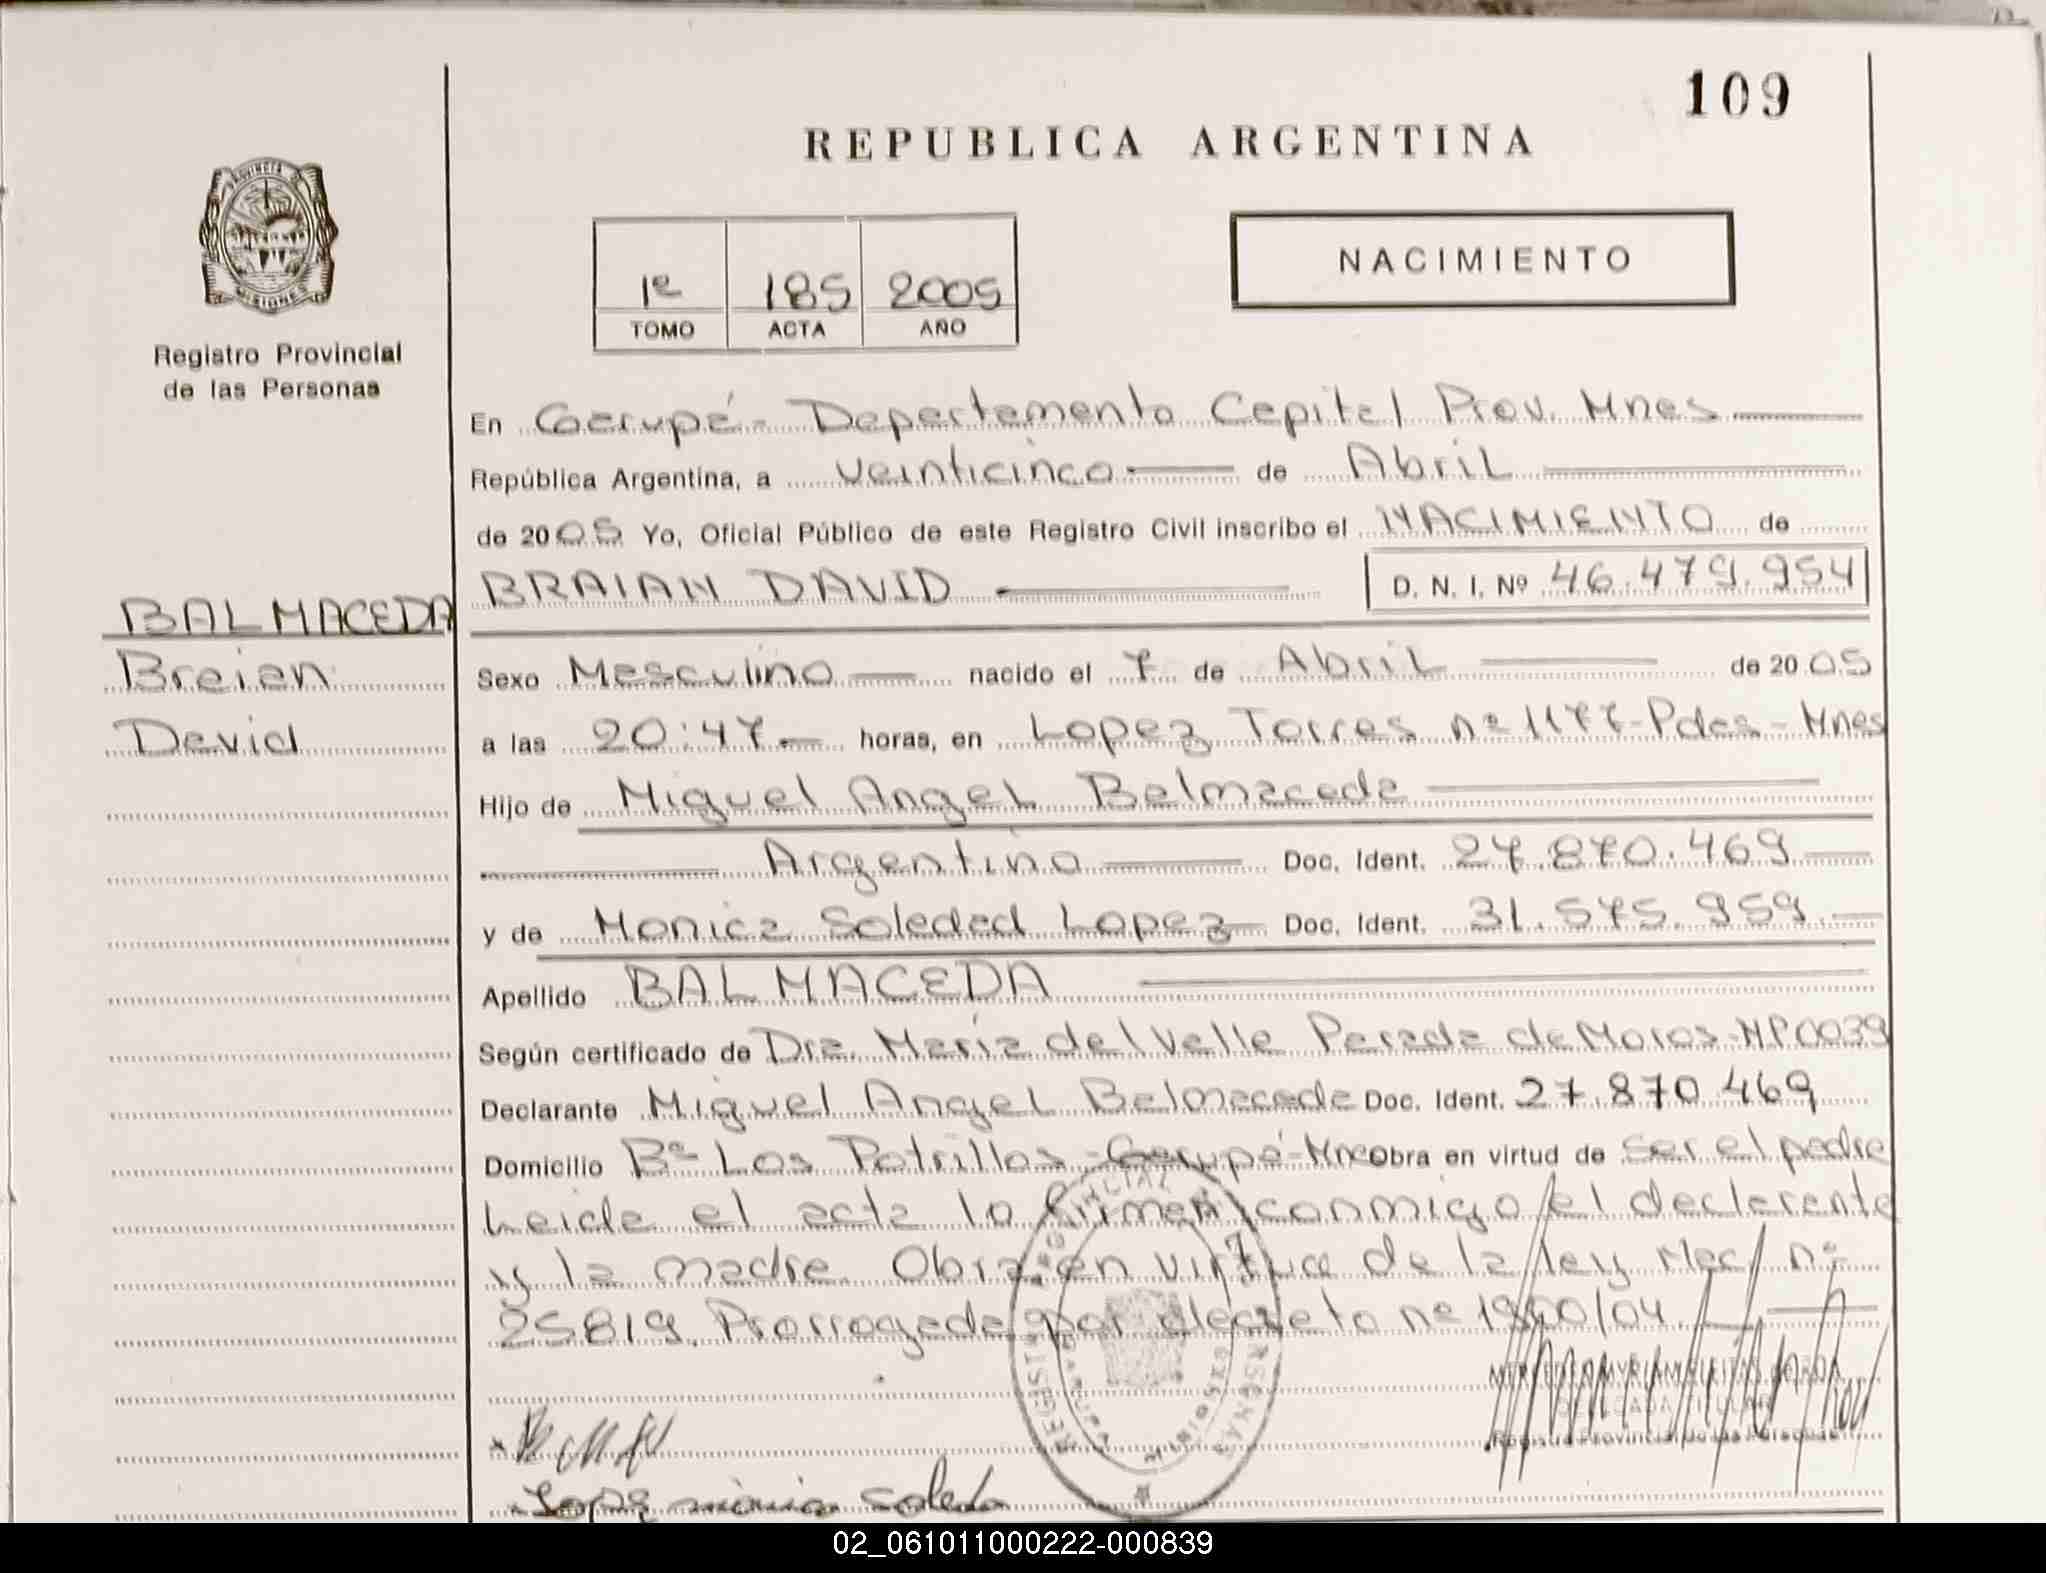 109
REPUBLICA ARGENTINA
PROVINCIA DE
MISIONES
Registro Provincial
de las Personas
1º 185 2005
TOMO ACTA AÑO
NACIMIENTO
En Garupá - Departamento Capital Prov. Mnes
República Argentina, a veinticinco de Abril
de 2005 Yo, Oficial Público de este Registro Civil inscribo el NACIMIENTO de
BALMACEDA
Braian
David
BRAIAN DAVID D. N. I. Nº 46.479.954
Sexo Masculino nacido el 7 de Abril de 2005
a las 20:47 horas, en Lopez Torres nº 1177 - Pdas - Mnes
Hijo de Miguel Angel Balmaceda
Argentino Doc. Ident. 27.870.469
y de Monica Soledad Lopez Doc. Ident. 31.575.959
Apellido BALMACEDA
Según certificado de Dra. María del Valle Parada de Moros - MP0039
Declarante Miguel Angel Balmaceda Doc. Ident. 27.870.469
Domicilio Bº Los Potrillos - Garupá - Mnes Obra en virtud de ser el padre
Leida el acta la firman conmigo el declarante
y la madre. Obra en virtud de la ley Nac. nº
25819. Prorrogada por decreto nº 1940/04
Lopez monica soledad
02_061011000222-000839